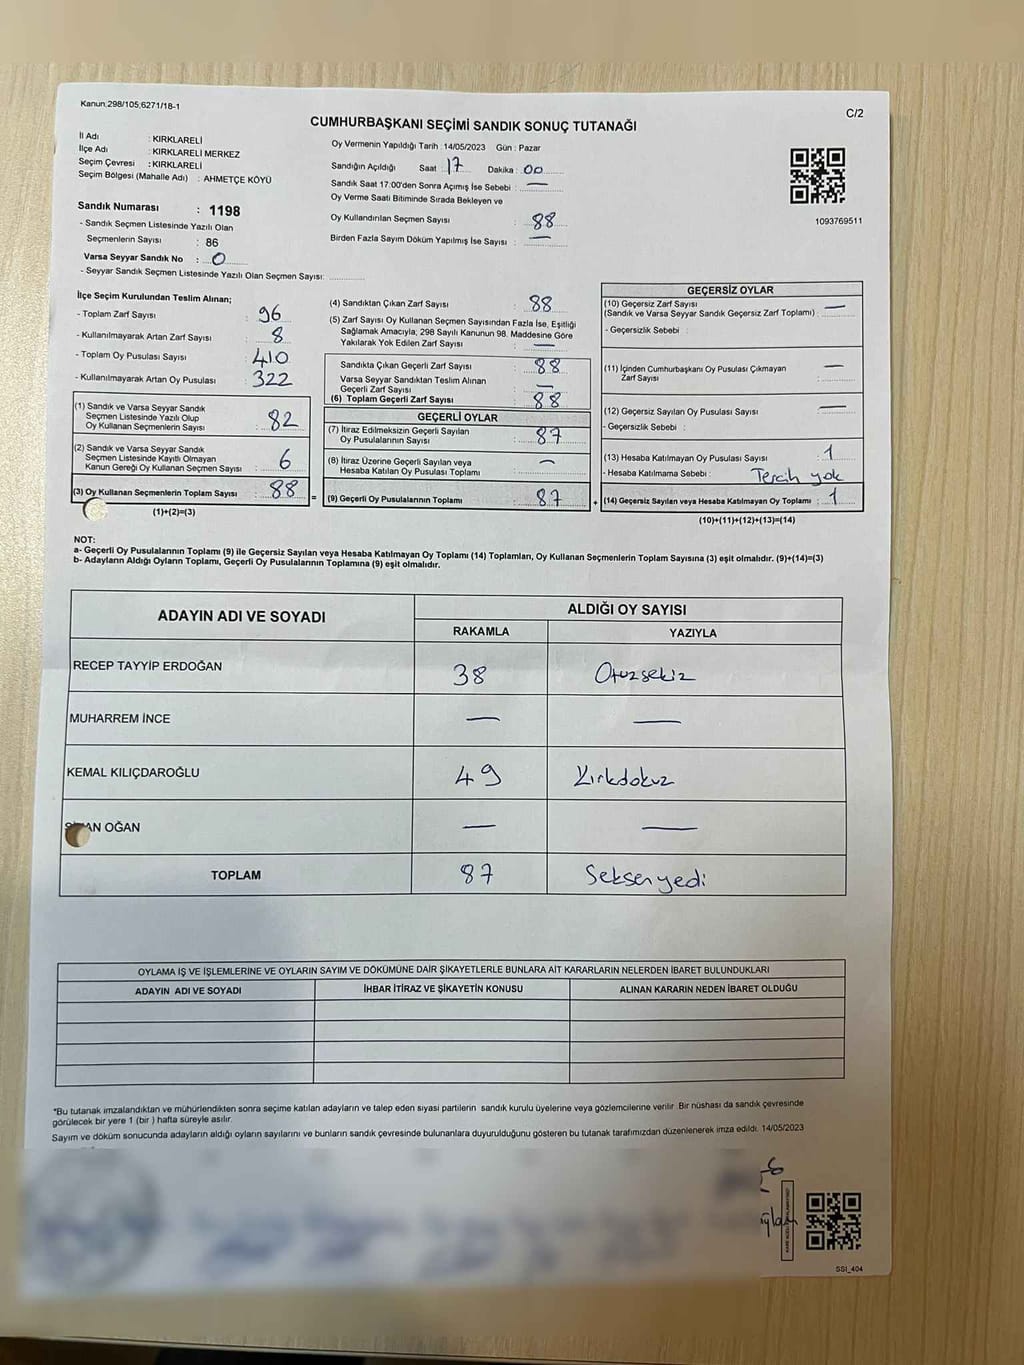 Kanun;298/105;6271/18-1
C/2
CUMHURBAŞKANI SEÇİMİ SANDIK SONUÇ TUTANAĞI
İl Adı : KIRKLARELİ
İlçe Adı : KIRKLARELİ MERKEZ
Seçim Çevresi : KIRKLARELİ
Seçim Bölgesi (Mahalle Adı) : AHMETÇE KÖYÜ
Sandık Numarası : 1198
- Sandık Seçmen Listesinde Yazılı Olan
Seçmenlerin Sayısı : 86
Varsa Seyyar Sandık No : 0
- Seyyar Sandık Seçmen Listesinde Yazılı Olan Seçmen Sayısı:
Oy Vermenin Yapıldığı Tarih :14/05/2023 Gün : Pazar
Sandığın Açıldığı Saat : 17 Dakika : 00
Sandık Saat 17:00'den Sonra Açımış İse Sebebi : —
Oy Verme Saati Bitiminde Sırada Bekleyen ve
Oy Kullandırılan Seçmen Sayısı : 88
Birden Fazla Sayım Döküm Yapılmış İse Sayısı : —
1093769511
İlçe Seçim Kurulundan Teslim Alınan;
- Toplam Zarf Sayısı : 96
- Kullanılmayarak Artan Zarf Sayısı : 8
- Toplam Oy Pusulası Sayısı : 410
- Kullanılmayarak Artan Oy Pusulası : 322
(1) Sandık ve Varsa Seyyar Sandık
Seçmen Listesinde Yazılı Olup
Oy Kullanan Seçmenlerin Sayısı : 82
(2) Sandık ve Varsa Seyyar Sandık
Seçmen Listesinde Kayıtlı Olmayan
Kanun Gereği Oy Kullanan Seçmen Sayısı : 6
(3) Oy Kullanan Seçmenlerin Toplam Sayısı : 88
(1)+(2)=(3)
(4) Sandıktan Çıkan Zarf Sayısı : 88
(5) Zarf Sayısı Oy Kullanan Seçmen Sayısından Fazla İse, Eşitliği
Sağlamak Amacıyla; 298 Sayılı Kanunun 98. Maddesine Göre
Yakılarak Yok Edilen Zarf Sayısı : —
Sandıkta Çıkan Geçerli Zarf Sayısı : 88
Varsa Seyyar Sandıktan Teslim Alınan
Geçerli Zarf Sayısı : —
(6) Toplam Geçerli Zarf Sayısı : 88
GEÇERLİ OYLAR
(7) İtiraz Edilmeksizin Geçerli Sayılan
Oy Pusulalarının Sayısı : 87
(8) İtiraz Üzerine Geçerli Sayılan veya
Hesaba Katılan Oy Pusulası Toplamı : —
= (9) Geçerli Oy Pusulalarının Toplamı : 87
GEÇERSİZ OYLAR
(10) Geçersiz Zarf Sayısı
(Sandık ve Varsa Seyyar Sandık Geçersiz Zarf Toplamı) : —
- Geçersizlik Sebebi :
(11) İçinden Cumhurbaşkanı Oy Pusulası Çıkmayan
Zarf Sayısı : —
(12) Geçersiz Sayılan Oy Pusulası Sayısı : —
- Geçersizlik Sebebi :
(13) Hesaba Katılmayan Oy Pusulası Sayısı : 1
- Hesaba Katılmama Sebebi : Tercih yok
+ (14) Geçersiz Sayılan veya Hesaba Katılmayan Oy Toplamı : 1
(10)+(11)+(12)+(13)=(14)
NOT:
a- Geçerli Oy Pusulalarının Toplamı (9) ile Geçersiz Sayılan veya Hesaba Katılmayan Oy Toplamı (14) Toplamları, Oy Kullanan Seçmenlerin Toplam Sayısına (3) eşit olmalıdır. (9)+(14)=(3)
b- Adayların Aldığı Oyların Toplamı, Geçerli Oy Pusulalarının Toplamına (9) eşit olmalıdır.
ADAYIN ADI VE SOYADI ALDIĞI OY SAYISI
RAKAMLA YAZIYLA
RECEP TAYYİP ERDOĞAN 38 Otuzsekiz
MUHARREM İNCE — —
KEMAL KILIÇDAROĞLU 49 Kırkdokuz
OĞAN — —
TOPLAM 87 Seksenyedi
OYLAMA İŞ VE İŞLEMLERİNE VE OYLARIN SAYIM VE DÖKÜMÜNE DAİR ŞİKAYETLERLE BUNLARA AİT KARARLARIN NELERDEN İBARET BULUNDUKLARI
ADAYIN ADI VE SOYADI İHBAR İTİRAZ VE ŞİKAYETİN KONUSU ALINAN KARARIN NEDEN İBARET OLDUĞU
*Bu tutanak imzalandıktan ve mühürlendikten sonra seçime katılan adayların ve talep eden siyasi partilerin sandık kurulu üyelerine veya gözlemcilerine verilir. Bir nüshası da sandık çevresinde
görülecek bir yere 1 (bir ) hafta süreyle asılır.
Sayım ve döküm sonucunda adayların aldığı oyların sayılarını ve bunların sandık çevresinde bulunanlara duyurulduğunu gösteren bu tutanak tarafımızdan düzenlenerek imza edildi. 14/05/2023
SSI_404